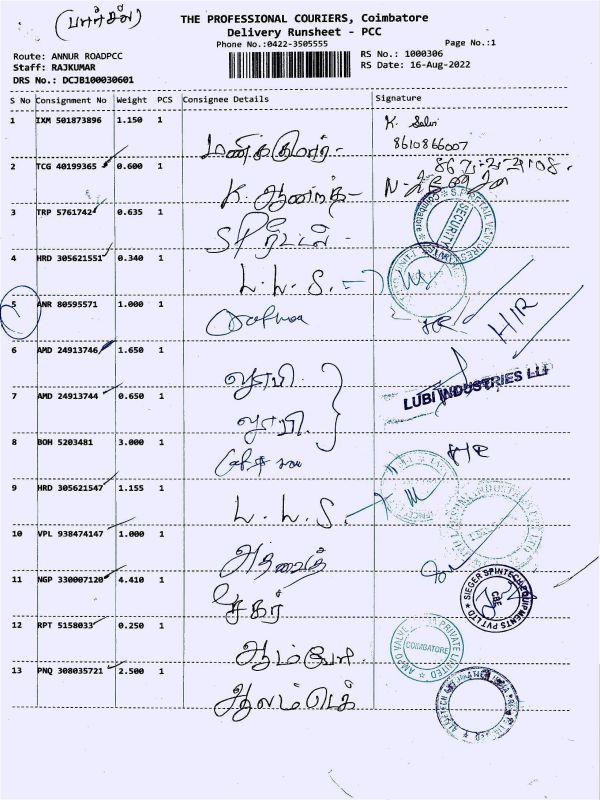 (பார்சல்)
THE PROFESSIONAL COURIERS, Coimbatore
Delivery Runsheet - PCC
Phone No.:0422-3505555
Page No.:1
Route: ANNUR ROADPCC
RS No.: 1000306
Staff: RAJKUMAR
RS Date: 16-Aug-2022
DRS No.: DCJB100030601
S No Consignment No Weight PCS Consignee Details Signature
1 IXM 501873896 1.150 1 K. Selvi
8610866007
மணிக்குமார் -
2 TCG 40199365 0.600 1
K. ஆனந்த் -
3 TRP 5761742 0.635 1
SP ரீட்டல் -
S.P. RETAIL VENTURES Coimbatore SECURITY
4 HRD 305621551 0.340 1
L. L. S.
5 ANR 80595571 1.000 1
H/R
6 AMD 24913746 1.650 1
லூபி
LUBI INDUSTRIES LLP
7 AMD 24913744 0.650 1
லூபி
8 BOH 5203481 3.000 1
H/R
9 HRD 305621547 1.155 1
L. L. S.
10 VPL 938474147 1.000 1
11 NGP 330007120 4.410 1
சீகர்
SIEGER SPINTECH EQUIPMENTS PVT LTD CBE
12 RPT 5158033 0.250 1
ஆம்போ
AMPO VALVES INDIA PRIVATE LIMITED COIMBATORE
13 PNQ 308035721 2.500 1
ஆலம்டெக்